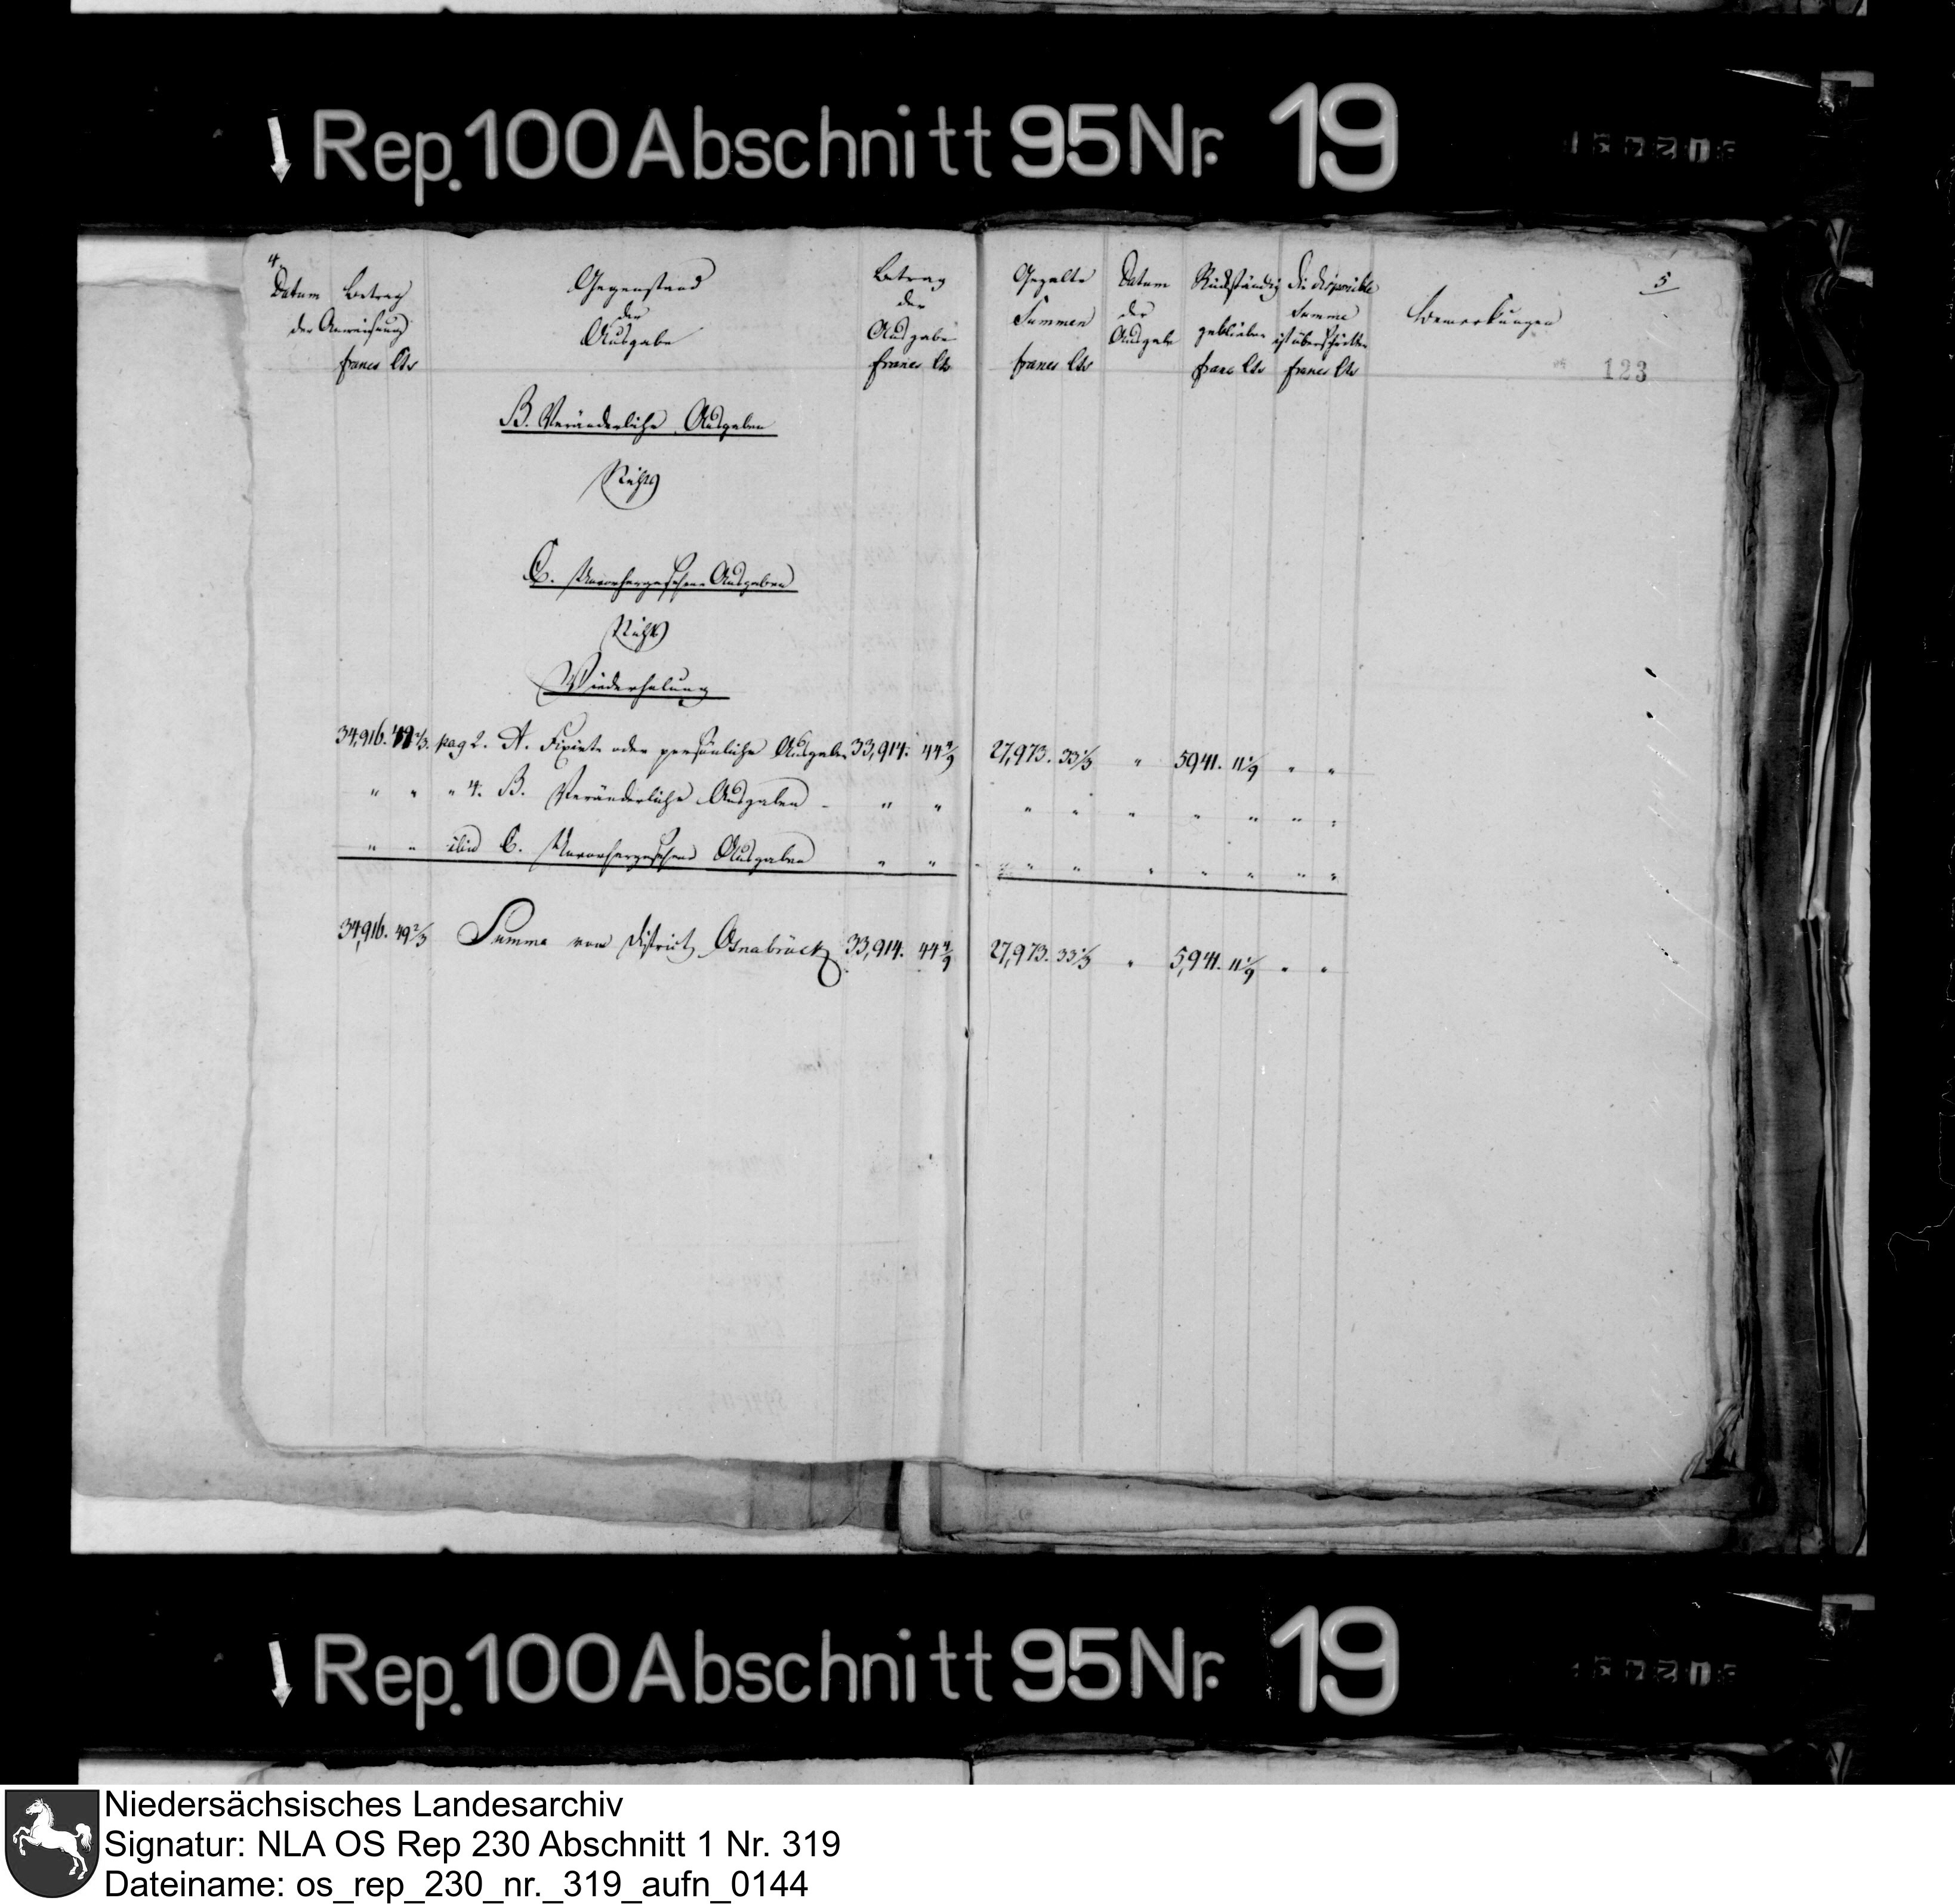 Rep. 100 Abschnitt 95 Nr. 19
4.
Datum Betrag
der Anweisung
francs Cts
Gegenstand
der
Ausgabe
Betrag
der
Ausgabe
francs Cts
Gezalte
Summen
francs Cts
Datum
der
Ausgabe
Rückständig
geblieben
franc Cts
Die disponible
Summe
ist überschritten
francs Cts
Bemerkungen
5
123
B. Veränderliche Ausgaben
Nichts
C. Unvorhergesehene Ausgaben
Nichts
Wiederholung
34,916. 49 2/3. pag 2. A. Fixirte oder persönliche Ausgaben 33,914. 44 4/9 27,973. 33 1/3 " 5941. 11 1/9 " "
" " " 4. B. Veränderliche Ausgaben - " " " " " " " " "
" " ibid C. Unvorhergesehene Ausgaben " " " " " " " " "
34,916. 49 2/3 Summa vom District Osnabrück 33,914. 44 4/9 27,973. 33 1/3 " 5,941. 11 1/9 " "
Rep. 100 Abschnitt 95 Nr. 19
Niedersächsisches Landesarchiv
Signatur: NLA OS Rep 230 Abschnitt 1 Nr. 319
Dateiname: os_rep_230_nr._319_aufn_0144